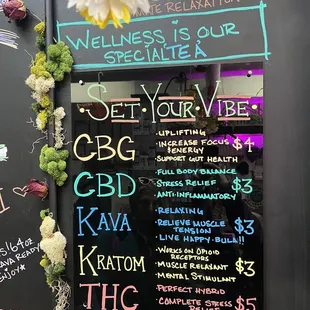 RELAXATION
WELLNESS IS OUR
SPECIALTEA
SET·YOUR·VIBE
CBG
·UPLIFTING
·INCREASE FOCUS
& ENERGY
·SUPPORT GUT HEALTH
$4
CBD
·FULL BODY BALANCE
·STRESS RELIEF
·ANTI-INFLAMMATORY
$3
KAVA
·RELAXING
·RELIEVE MUSCLE
TENSION
·LIVE HAPPY-BULA!!
$3
KRATOM
·WORKS ON OPIOID
RECEPTORS
·MUSCLE RELAXANT
·MENTAL STIMULANT
$3
THC
·PERFECT HYBRID
·COMPLETE STRESS
RELIEF
$5
5/64oz
KAVA READY
ENJOY